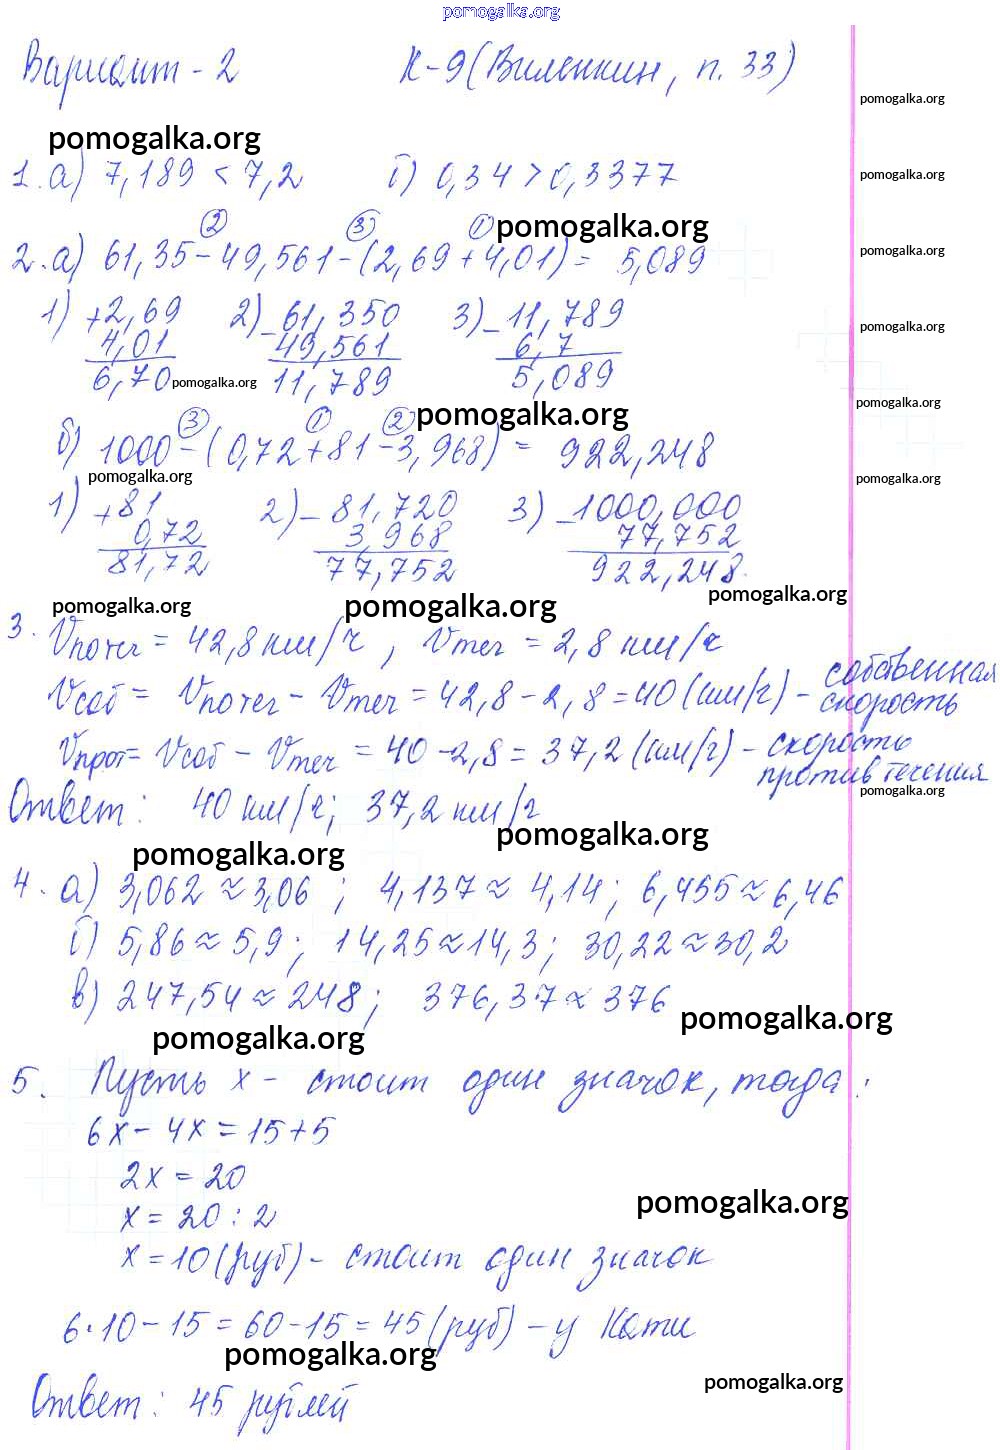 pomogalka.org
Вариант - 2 К-9 (Виленкин, п. 33)
pomogalka.org
pomogalka.org
1. а) 7,189 < 7,2 б) 0,34 > 0,3377
pomogalka.org
② ③ ① pomogalka.org
2. а) 61,35 - 49,561 - (2,69 + 4,01) = 5,089
pomogalka.org
1) +2,69 2) -61,350 3) -11,789
pomogalka.org
4,01 49,561 6,7
6,70 11,789 5,089
pomogalka.org
pomogalka.org
③ ① ② pomogalka.org
б) 1000 - (0,72 + 81 - 3,968) = 922,248
pomogalka.org
pomogalka.org
1) +81 2) -81,720 3) -1000,000
0,72 3,968 77,752
81,72 77,752 922,248.
pomogalka.org
pomogalka.org pomogalka.org
3. Vпотеч = 42,8 км/ч, Vтеч = 2,8 км/ч
Vсоб = Vпотеч - Vтеч = 42,8 - 2,8 = 40 (км/ч) - собственная
скорость
Vпрот = Vсоб - Vтеч = 40 - 2,8 = 37,2 (км/ч) - скорость
против течения
pomogalka.org
Ответ: 40 км/ч; 37,2 км/ч
pomogalka.org
pomogalka.org
4. а) 3,062 ≈ 3,06; 4,137 ≈ 4,14; 6,455 ≈ 6,46
б) 5,86 ≈ 5,9; 14,25 ≈ 14,3; 30,22 ≈ 30,2
в) 247,54 ≈ 248; 376,37 ≈ 376
pomogalka.org
pomogalka.org
5. Пусть х - стоит один значок, тогда:
6х - 4х = 15 + 5
2х = 20
х = 20 : 2
pomogalka.org
х = 10 (руб) - стоит один значок
6·10 - 15 = 60 - 15 = 45 (руб) - у Кати
pomogalka.org
pomogalka.org
Ответ: 45 рублей